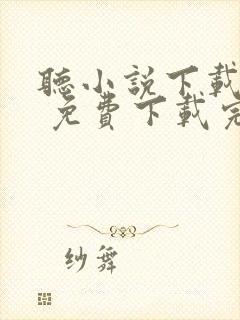 聽小說下載
免費下載完
紗舞